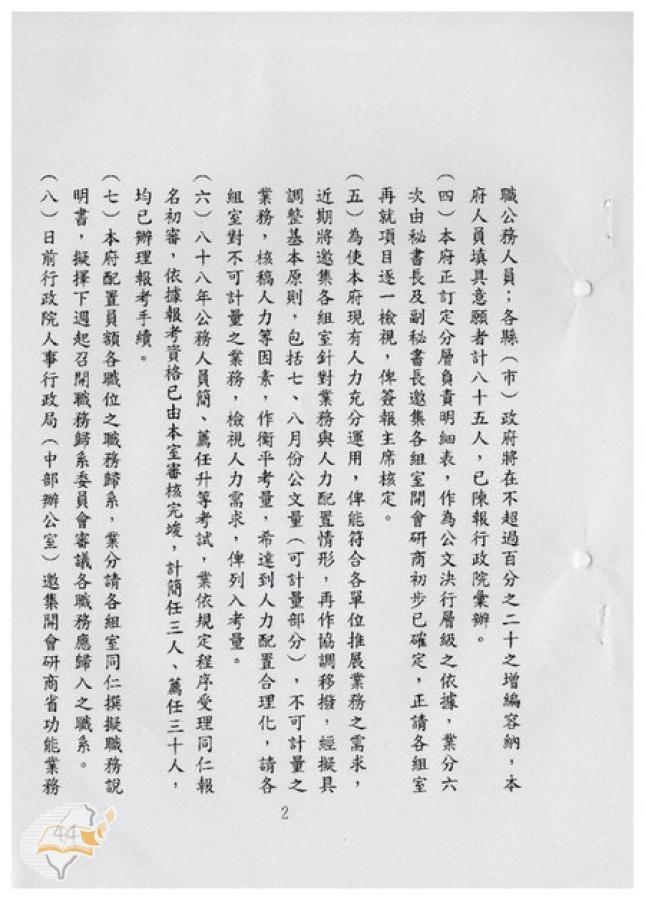 職公務人員；各縣（市）政府將在不超過百分之二十之增編容納，本
府人員填具意願者計八十五人，已陳報行政院彙辦。
（四）本府正訂定分層負責明細表，作為公文決行層級之依據，業分六
次由秘書長及副秘書長邀集各組室開會研商初步已確定，正請各組室
再就項目逐一檢視，俾簽報主席核定。
（五）為使本府現有人力充分運用，俾能符合各單位推展業務之需求，
近期將邀集各組室針對業務與人力配置情形，再作協調移撥，經擬具
調整基本原則，包括七、八月份公文量（可計量部分），不可計量之
業務，核稿人力等因素，作衡平考量，希達到人力配置合理化，請各
組室對不可計量之業務，檢視人力需求，俾列入考量。
（六）八十八年公務人員簡、薦任升等考試，業依規定程序受理同仁報
名初審，依據報考資格已由本室審核完竣，計簡任三人、薦任三十人，
均已辦理報考手續。
（七）本府配置員額各職位之職務歸系，業分請各組室同仁撰擬職務說
明書，擬擇下週起召開職務歸系委員會審議各職務應歸入之職系。
（八）日前行政院人事行政局（中部辦公室）邀集開會研商省功能業務
2
44